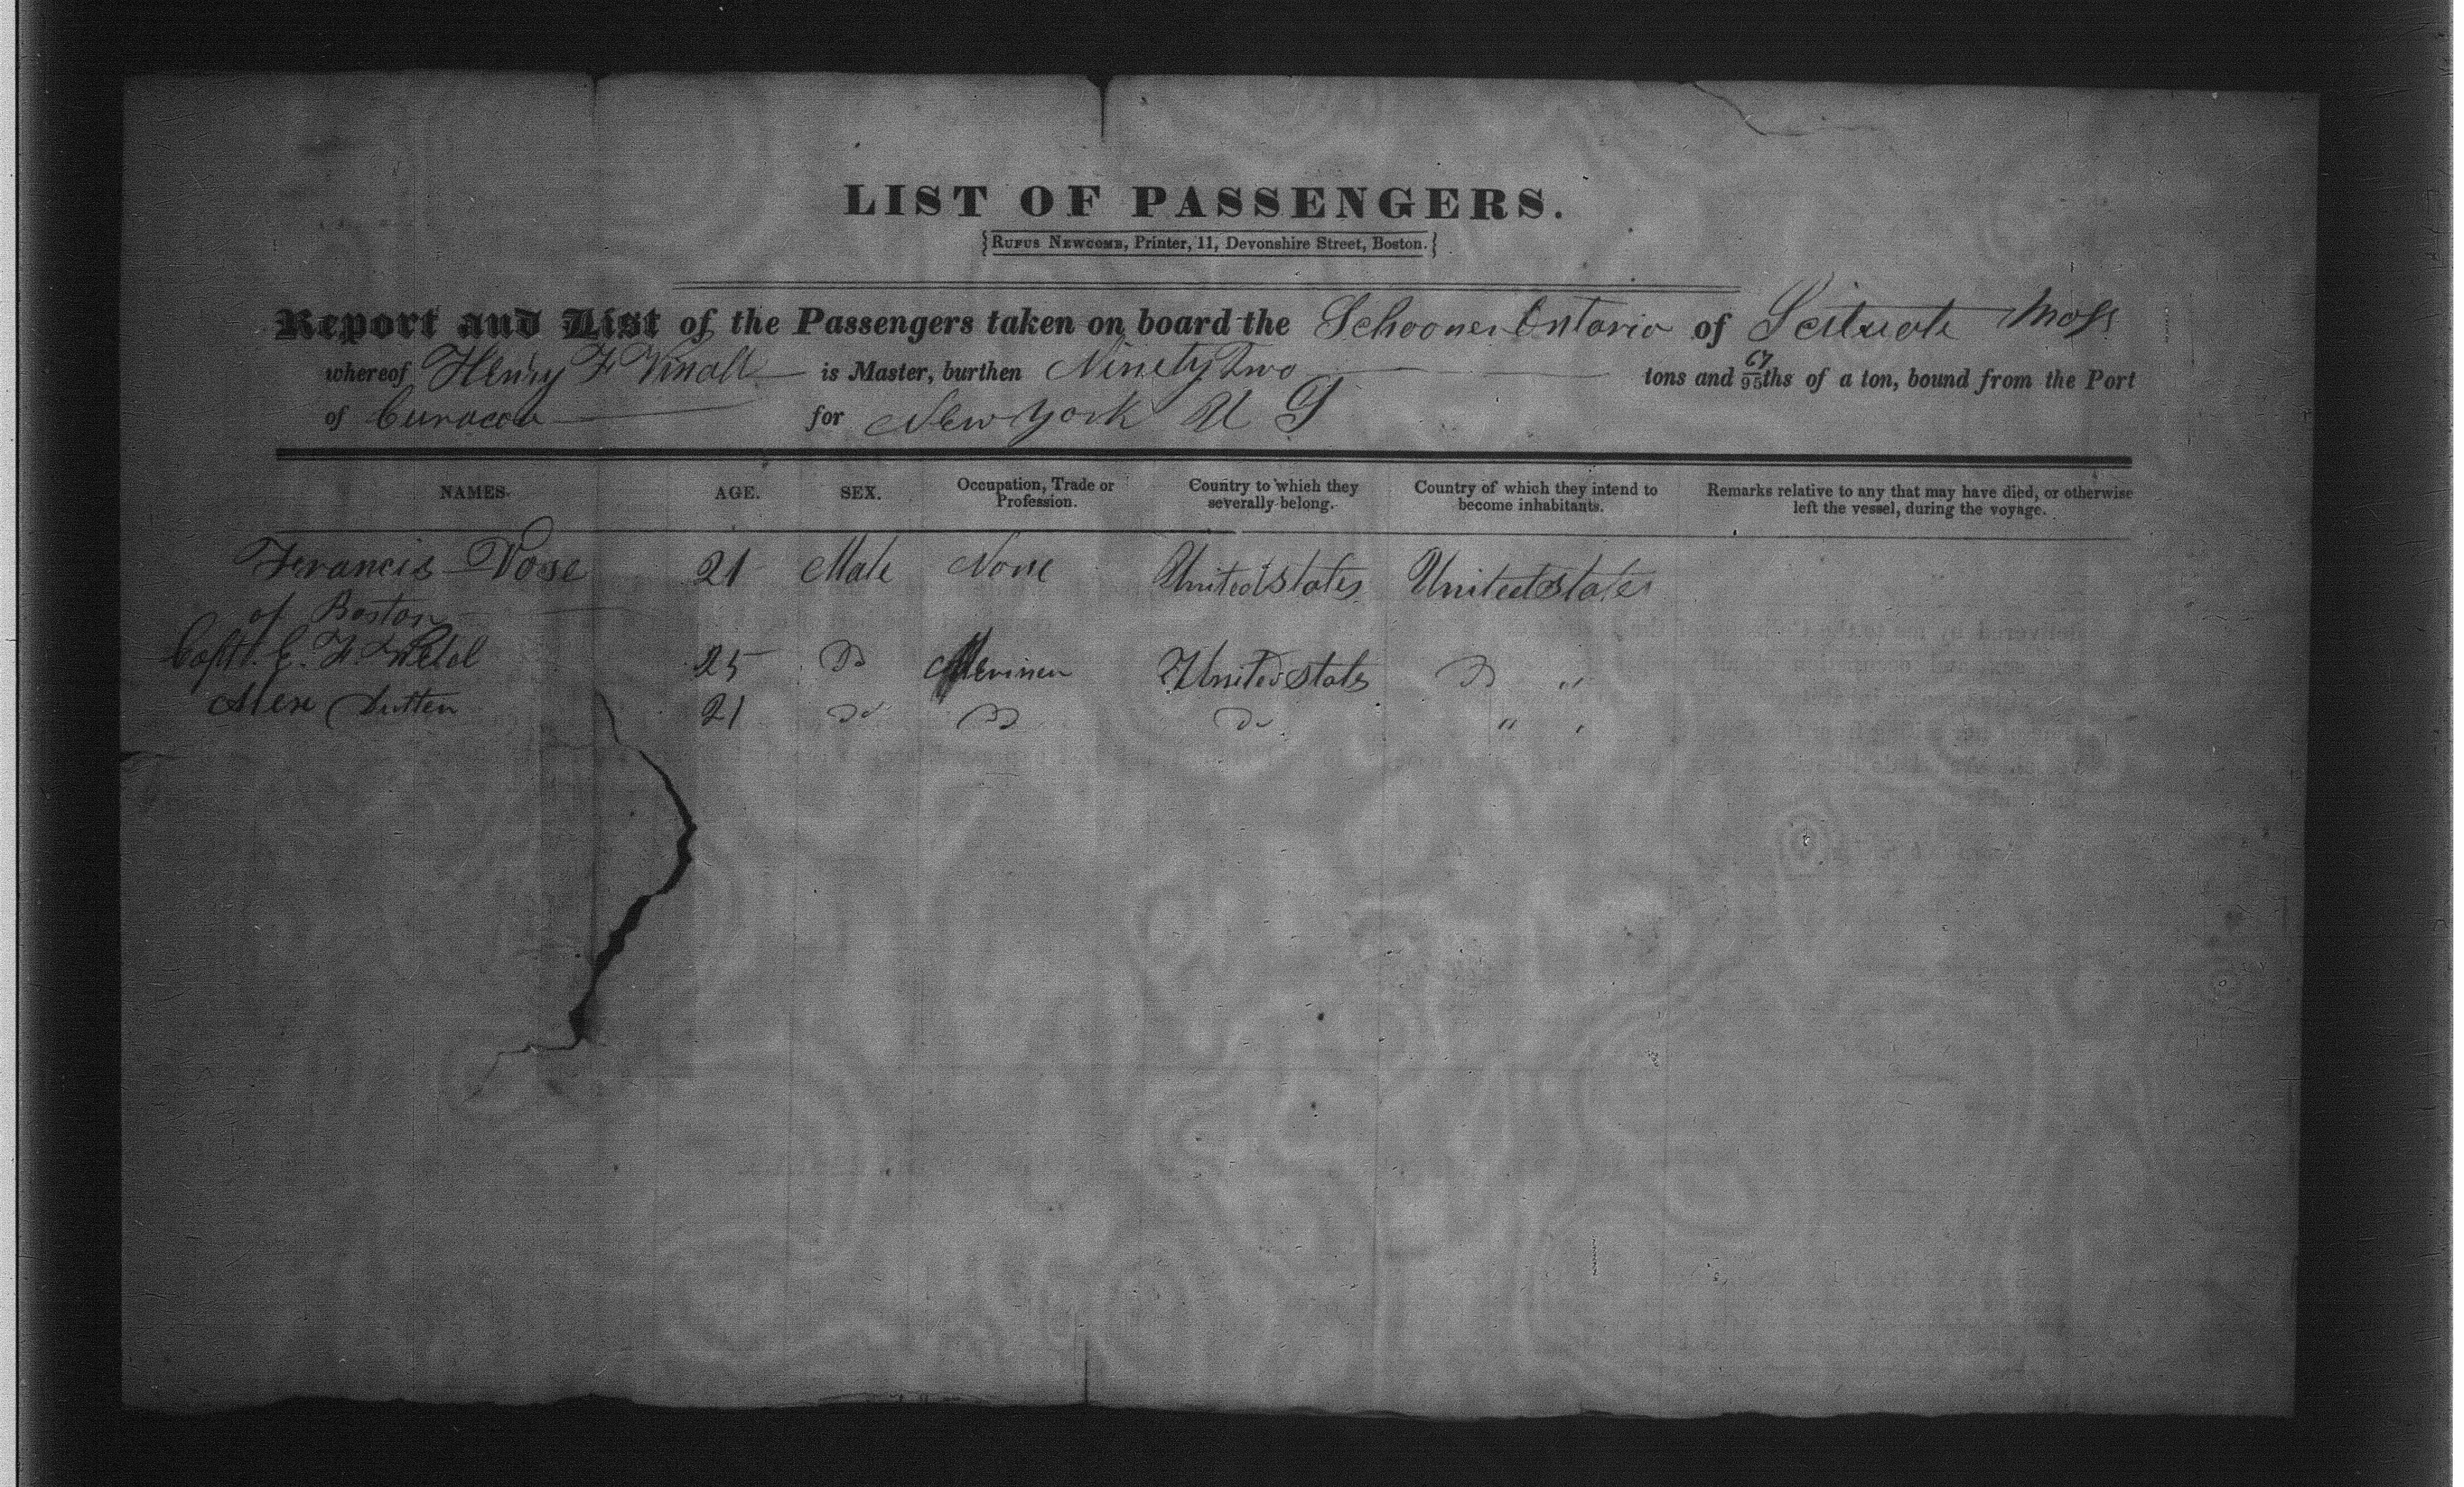 LIST OF PASSENGERS.
{RUFUS NEWCOMB, Printer, 11, Devonshire Street, Boston.}
Report and List of the Passengers taken on board the Schooner Ontario of Scituate Mass
whereof Henry F Vinall is Master, burthen Ninety Two tons and 67/95ths of a ton, bound from the Port
of Curacoa for New York U S
NAMES. AGE. SEX. Occupation, Trade or Profession. Country to which they severally belong. Country of which they intend to become inhabitants. Remarks relative to any that may have died, or otherwise left the vessel, during the voyage.
Francis Vose 21 Male None United States United States
of Boston
Capt. E. 25 Do United States Do "
Alex 21 Do Do Do " "